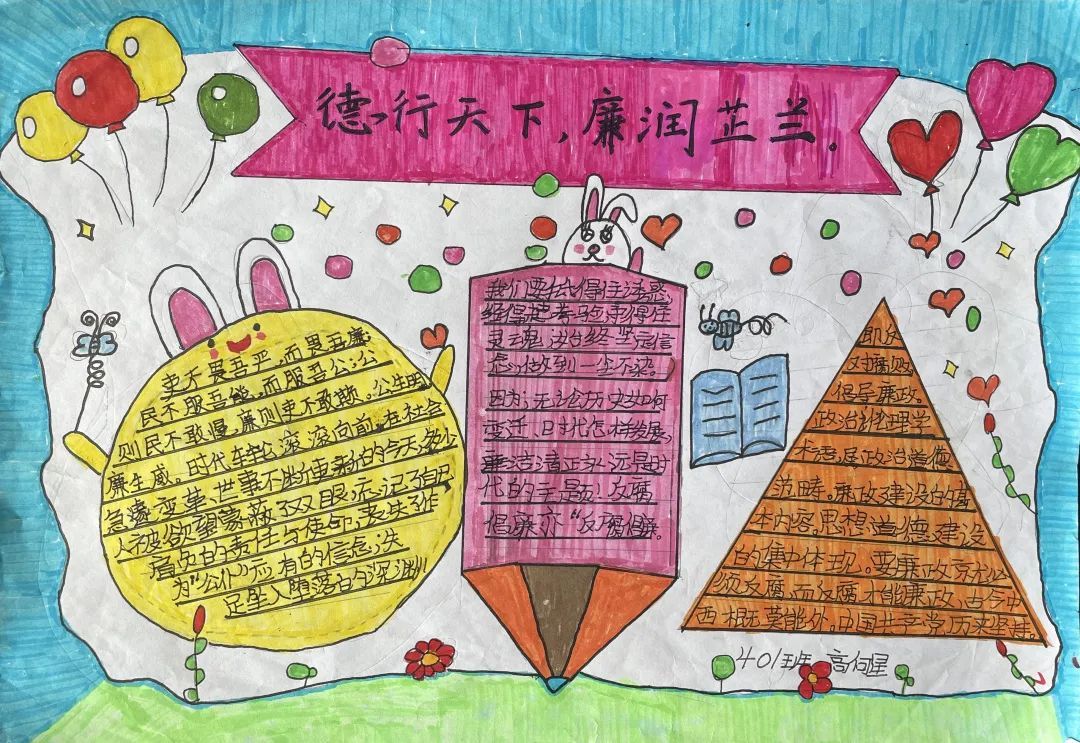 德行天下，廉润芷兰。
吏不畏吾严，而畏吾廉；
民不服吾能，而服吾公；公
则民不敢慢，廉则吏不敢欺。公生明，
廉生威。时代车轮滚滚向前，在社会
急遽变革、世事不断更新的今天，多少
人被欲望蒙蔽了双眼，忘记了自己
肩负的责任与使命，丧失了作
为“公仆”应有的信念，失
足坠入堕落的深渊
我们要抗得住诱惑
经得起考验，耐得住
灵魂，始终坚定信
念，做到一尘不染
因为，无论历史如何
变迁、时代怎样发展，
廉洁清正永远是时
代的主题；反腐
倡廉亦“反腐倡廉。
即反
对腐败，
倡导廉政。
政治伦理学
术语，属政治道德
范畴。廉政建设的基
本内容。思想道德建设
的集中体现。要廉政京必
须反腐，而反腐，才能廉政，古今中
西概莫能外。中国共产党历来坚持
401班 高